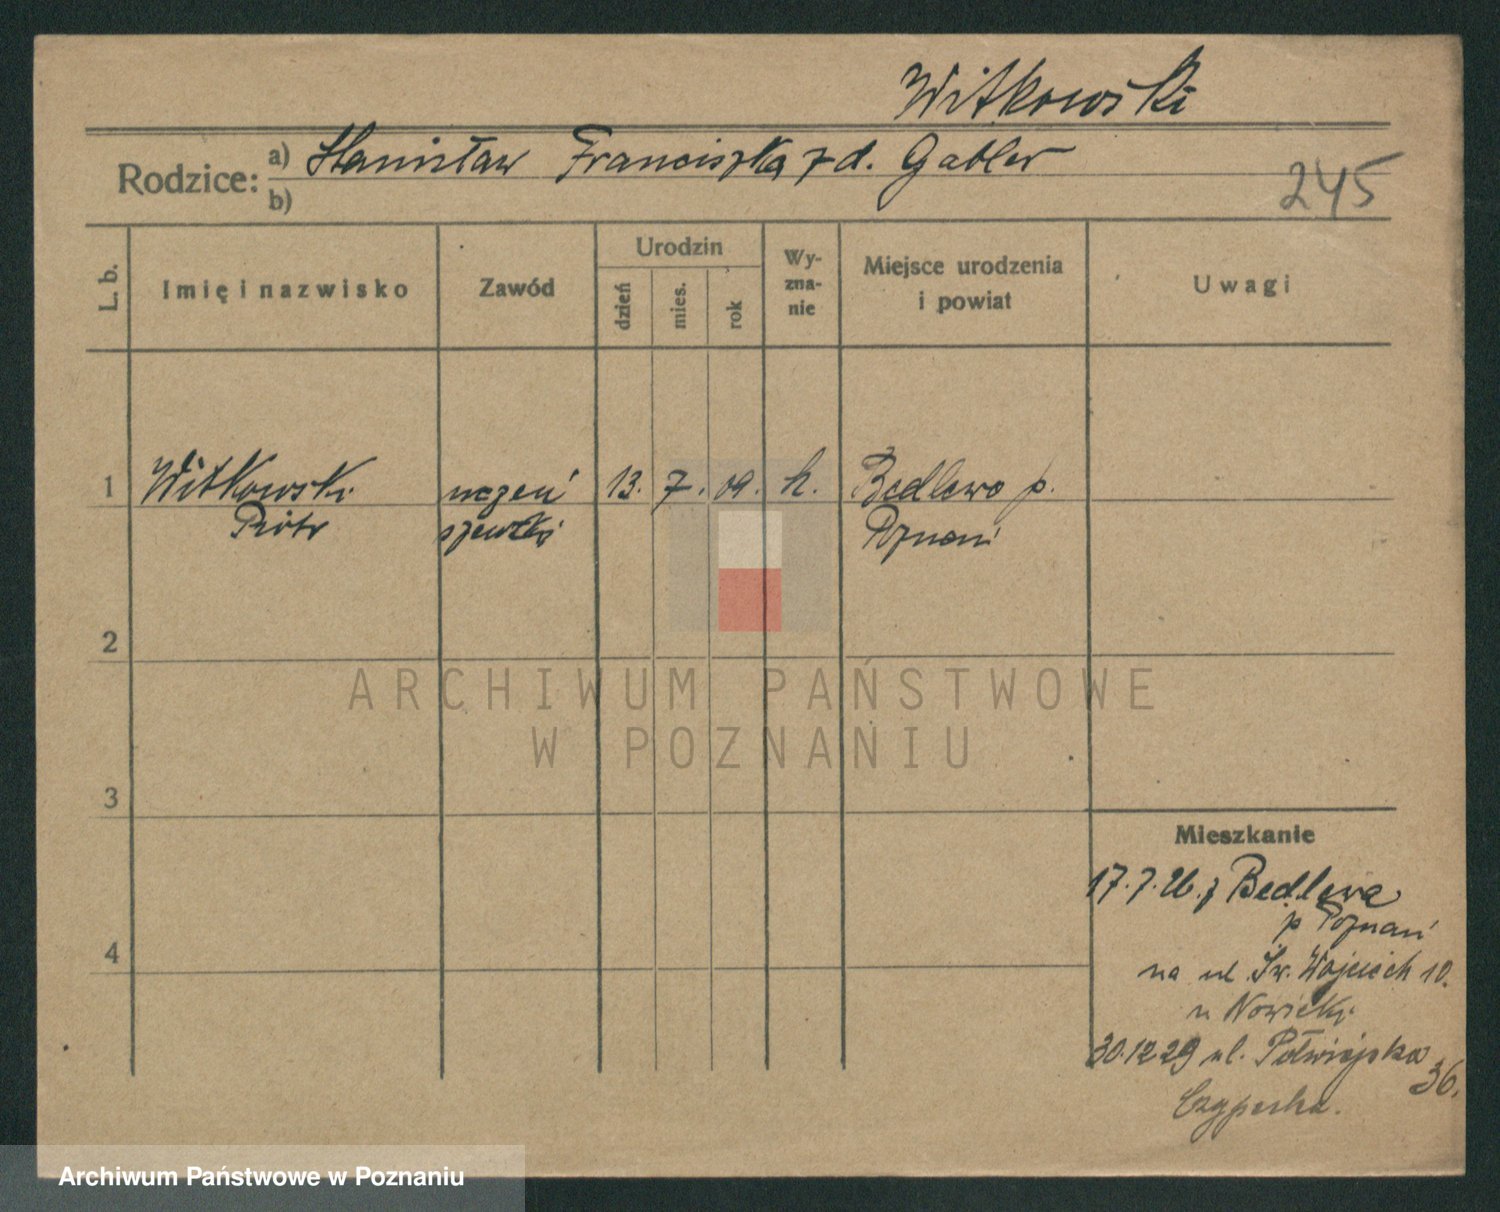 Witkowski
Rodzice: a) Stanisław Franciszka z d. Gabler
b)
245
L. b. Imię i nazwisko Zawód Urodzin dzień mies. rok Wy-zna-nie Miejsce urodzenia i powiat Uwagi
1 Witkowski uczeń 13. 7. 09. k. Bedlewo p.
Piotr szewski Poznań
2
ARCHIWUM PAŃSTWOWE
W POZNANIU
3
Mieszkanie
17.7.26. z Bedlewa
p Poznań
4
na ul. Św. Wojciech 10.
u Nowicki
30.12.29 ul. Półwiejska
36.
Archiwum Państwowe w Poznaniu